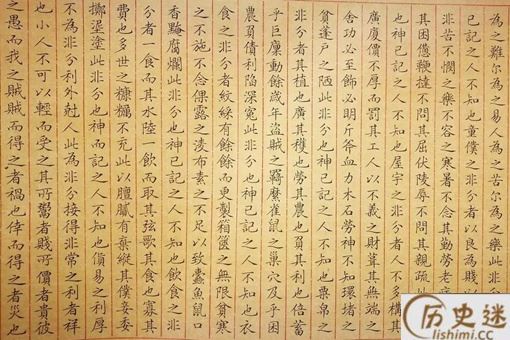 為之難尔為之易人為之苦尔為之樂此非分
已記之人不知也童僕之非分者以良為賤
非苦不憫之樂不容之寒暑不念其勤勞老
其困憊鞭撻不問其屈伏陵辱不問其親疏此
也神已記之人不知也屋宇之非分者人不多構其
廣廈價不厚而罰其工人以不義之財葺其無端之
舍功必至飾必明斤斧血力木石勞神不知環堵之
貧蓬戸之陋此非分也神已記之人不知也粟帛之
非分者其植也廣其穫也勞其農也負其利也倍蓄
乎巨廩動餘歲年盜賊之羇縻雀鼠之巢穴及乎困
農負債利陷深寃此非分也神已記之人不知也衣
食之非分者紋綵有餘餘而更製箱篋之無限貧寒
之不施不念倮露之淩布素之不足以致蠹魚鼠口
香黦腐爛此非分也神已記之人不知也飲食之非
分者一食而其水陸一飲而取其弦歌其食也寡其
費也多世之糠糲不充此以膻膩有棄縱其僕妾委
擲埿塗此非分也神而記之人不知也價易之利厚
不為非分利外尅人此為非分接得非常之利者祥
也小人不可以輕而受之其所鬻者賤所價者貴彼
之愚而我之賊賊而得之者禍也倖而得之者災也
历史迷
lishimi.cc